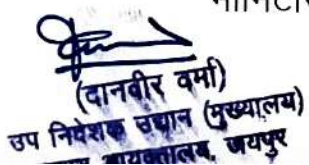 (दानवीर वर्मा)
उप निदेशक उद्यान (मुख्यालय)
आयुक्तालय, जयपुर